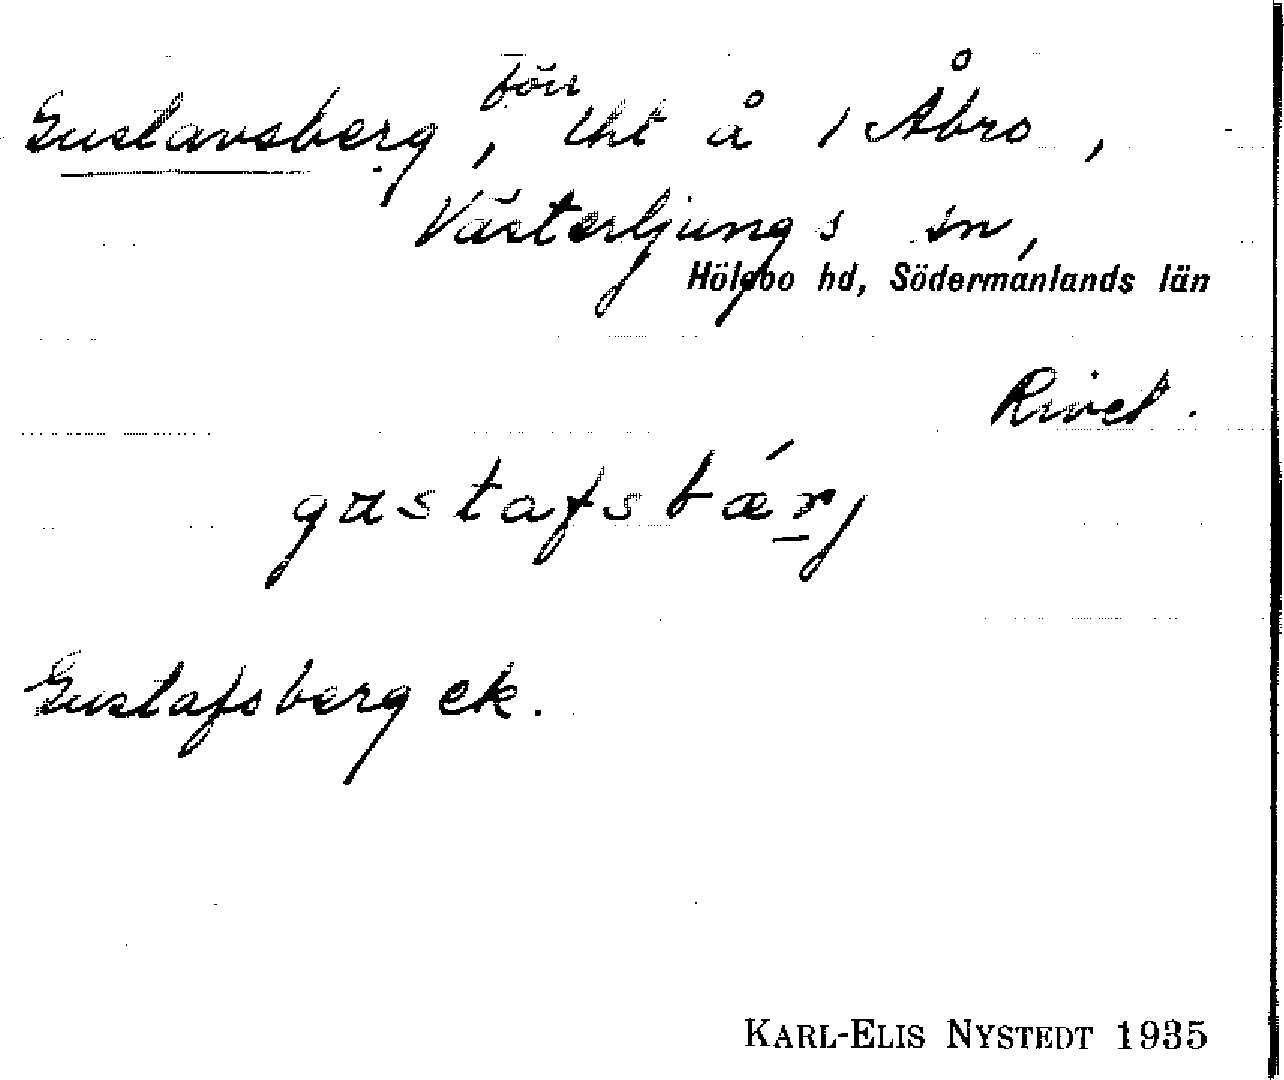 Gustavsberg, förr lht å 1 Åbro,
Västerljungs sn,
Hölebo hd, Södermanlands län
Rivet.
gustafsbǽrj
Gustafsberg ek.
KARL-ELIS NYSTEDT 1935